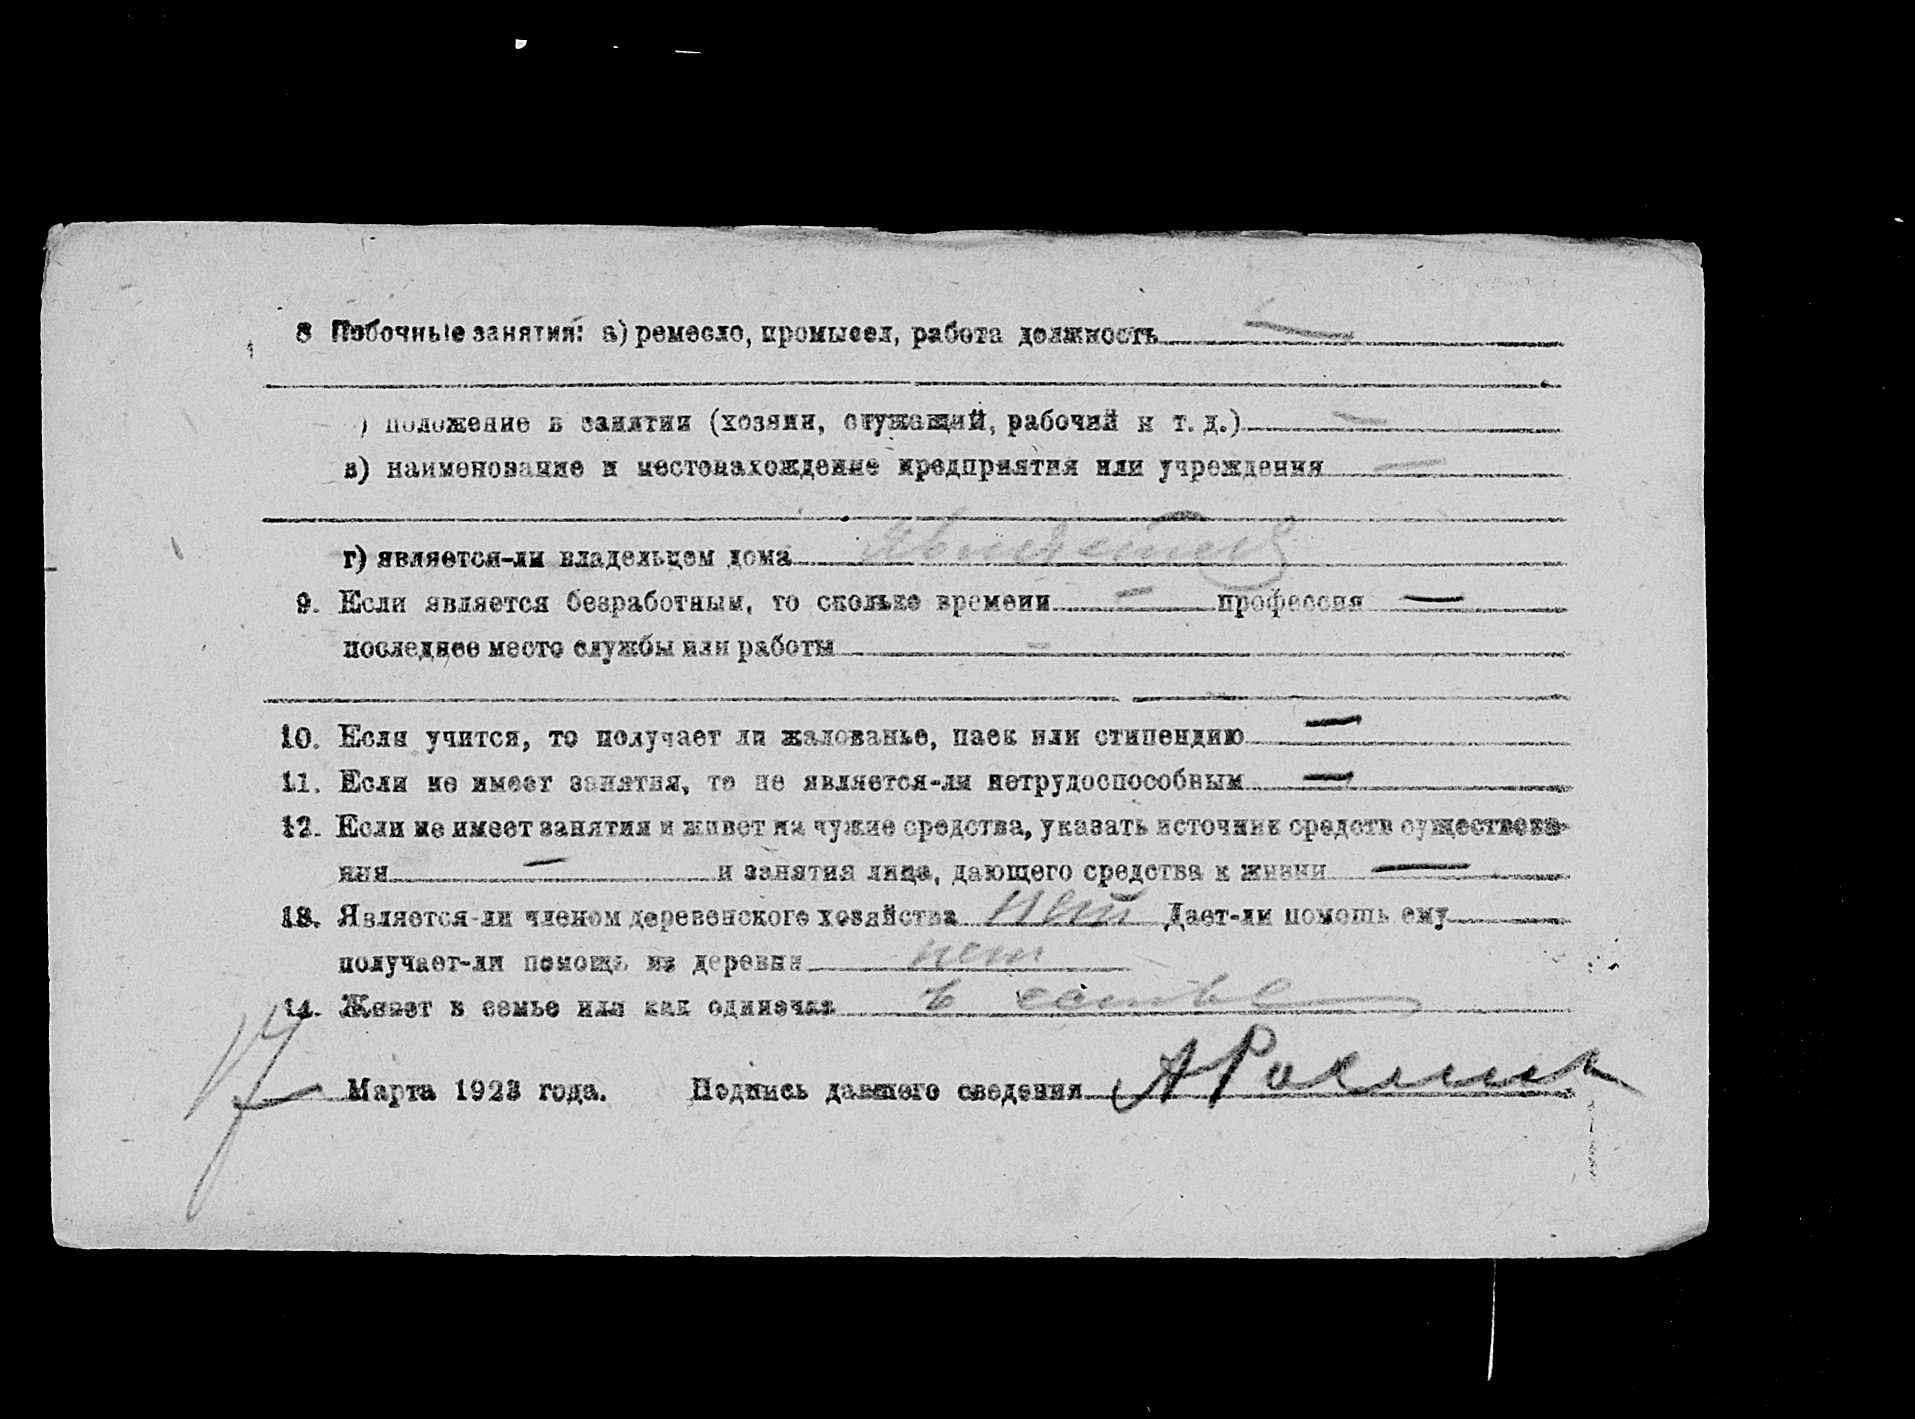 8 Побочные занятия: а) ремесло, промысел, работа должность —
) положение в занятии (хозяин, служащий, рабочий и т. д.) —
в) наименование и местонахождение предприятия или учреждения —
г) является-ли владельцем дома
9. Если является безработным, то сколько времени — профессия —
последнее место службы или работы —
10. Если учится, то получает ли жалованье, паек или стипендию —
11. Если не имеет занятия, то не является-ли нетрудоспособным —
12. Если не имеет занятия и живет на чужие средства, указать источник средств существова-
ния — и занятия лица, дающего средства к жизни —
13. Является-ли членом деревенского хозяйства нет Дает-ли помощь ему
получает-ли помощь из деревни нет
14. Живет в семье или как одиночка в семье
17 Марта 1923 года. Подпись давшего сведения